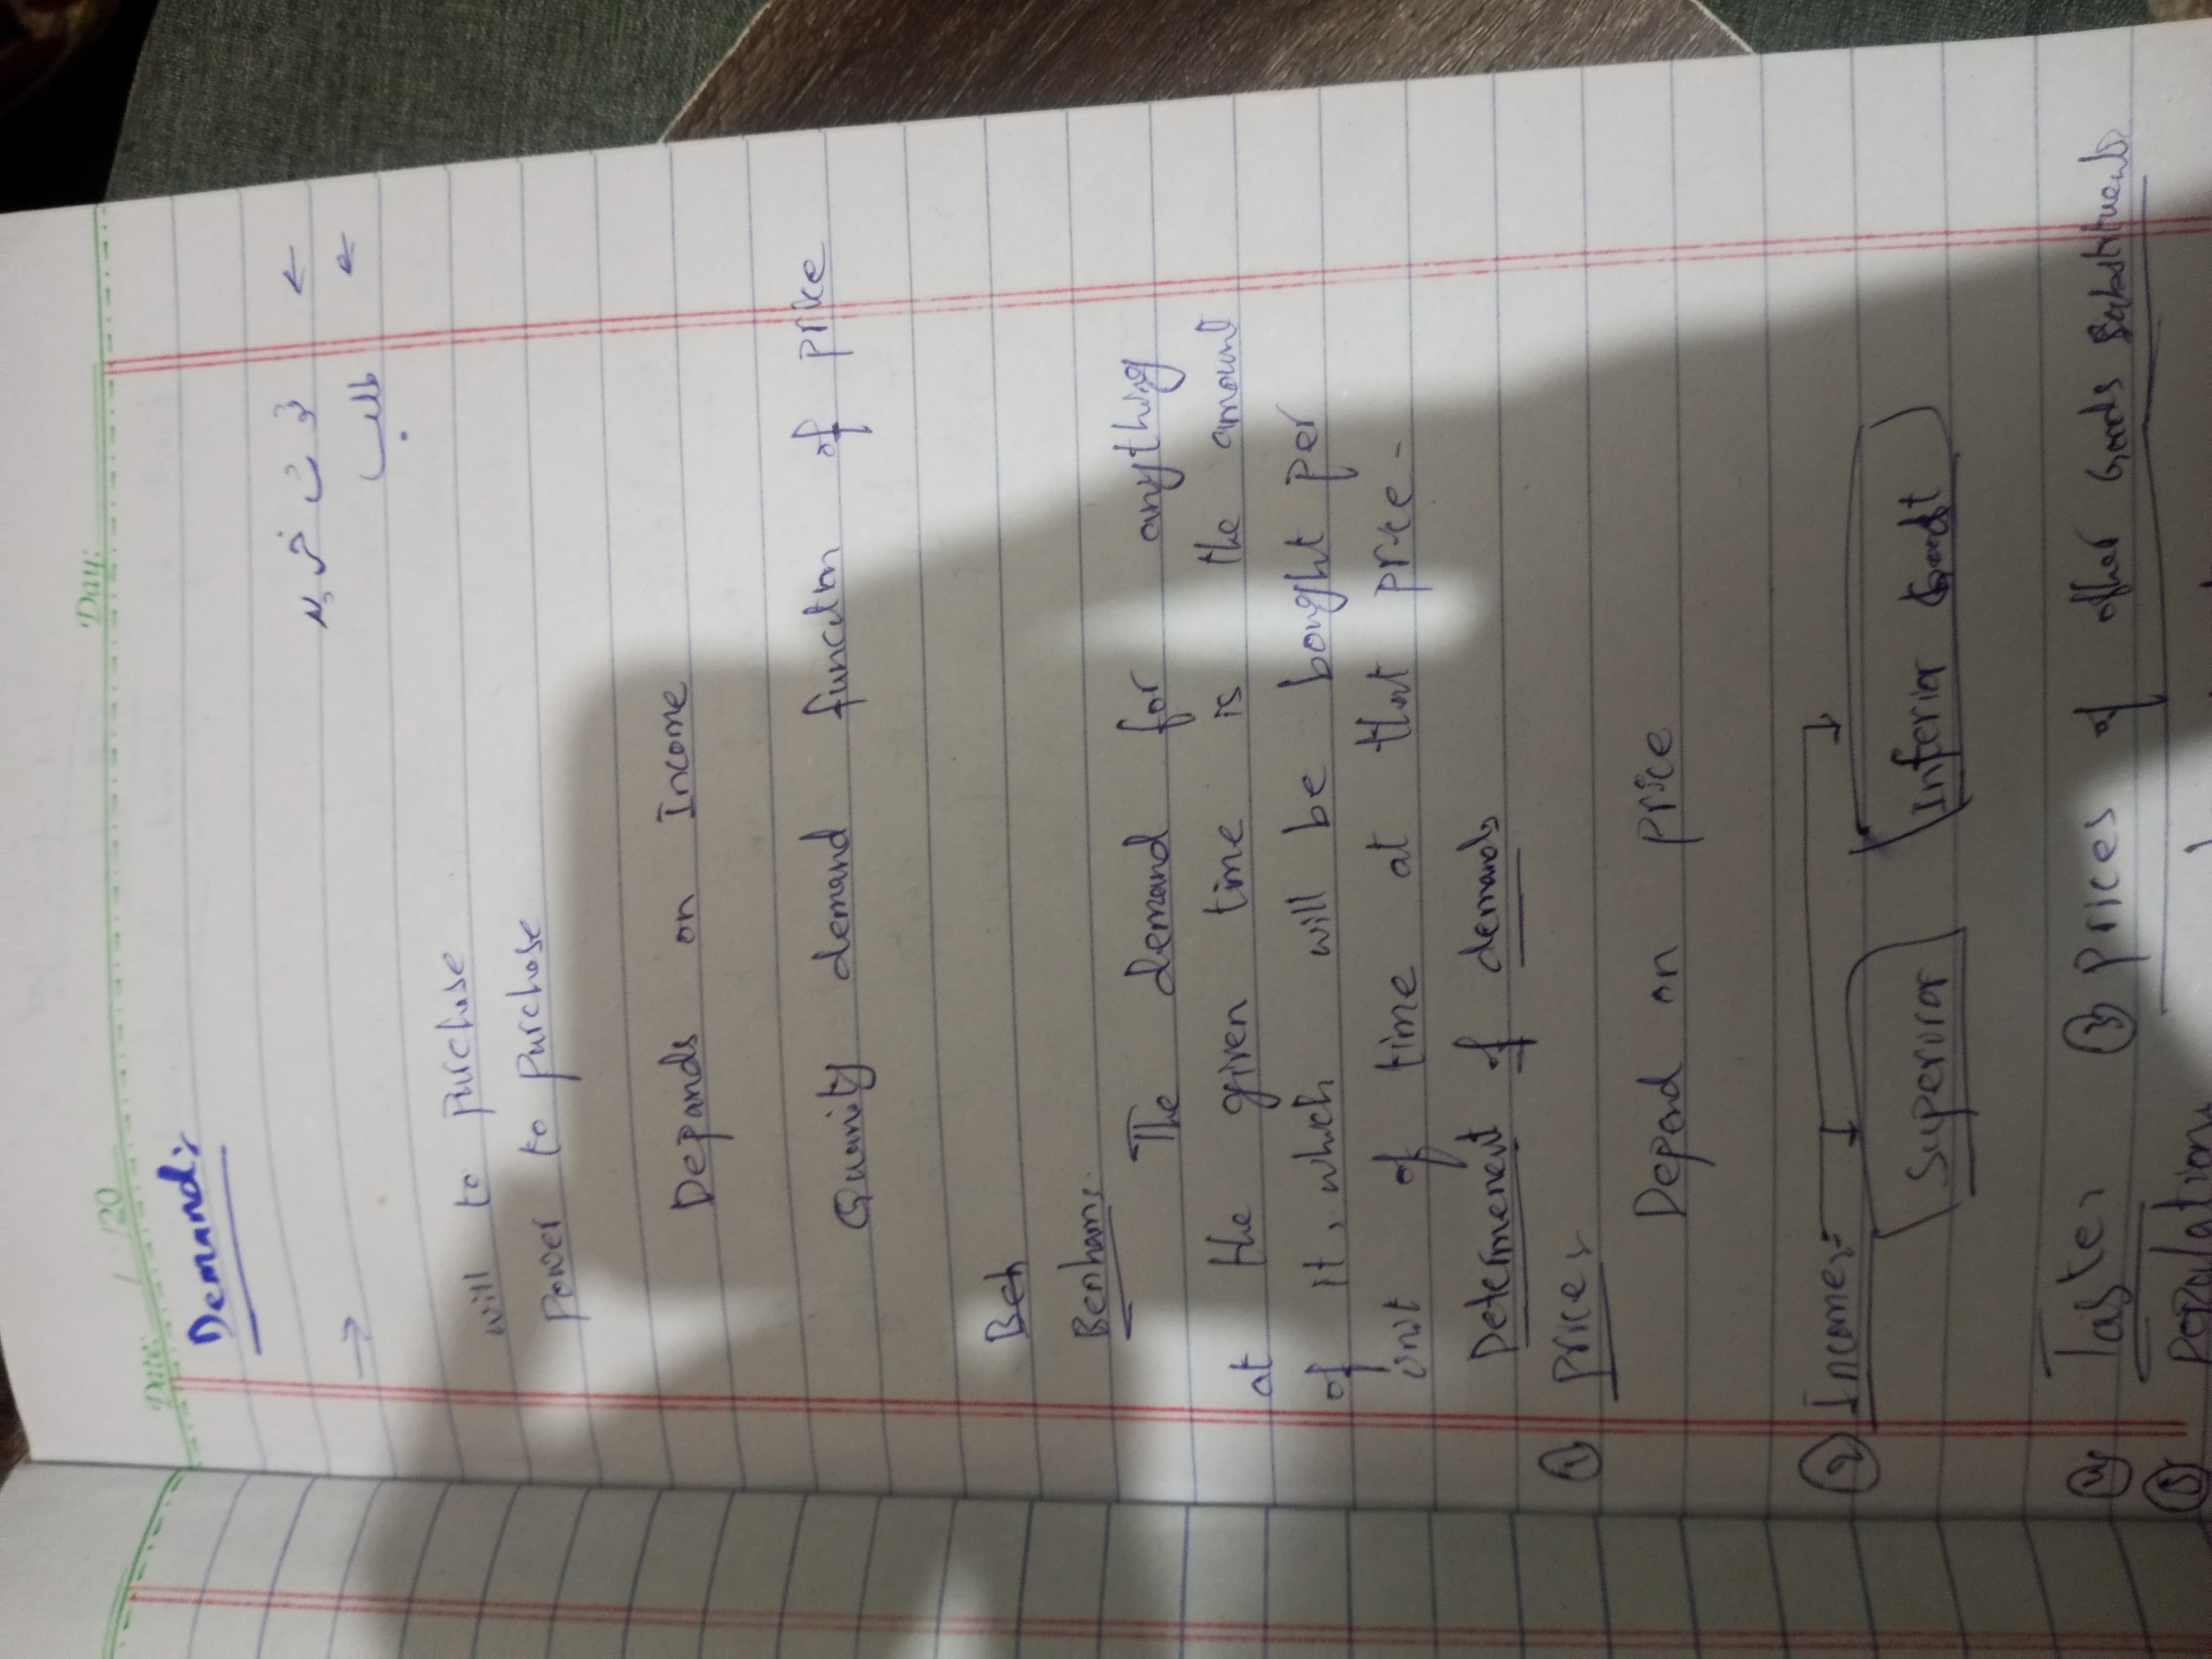 Date: / /20 Day:
Demand:
→ قوت خرید ←
طلب ←
will to purchase
Power to purchase
Depands on Income
Quanity demand function of price
Beh
Benham:
The demand for anything
at the given time is the amount
of it, which will be bought per
unit of time at that price -
Determenent of demands
① price:
Depend on price
② Income:-
Superiror Inferior Good
④ Taste: ③ Prices of other Goods
⑤ population